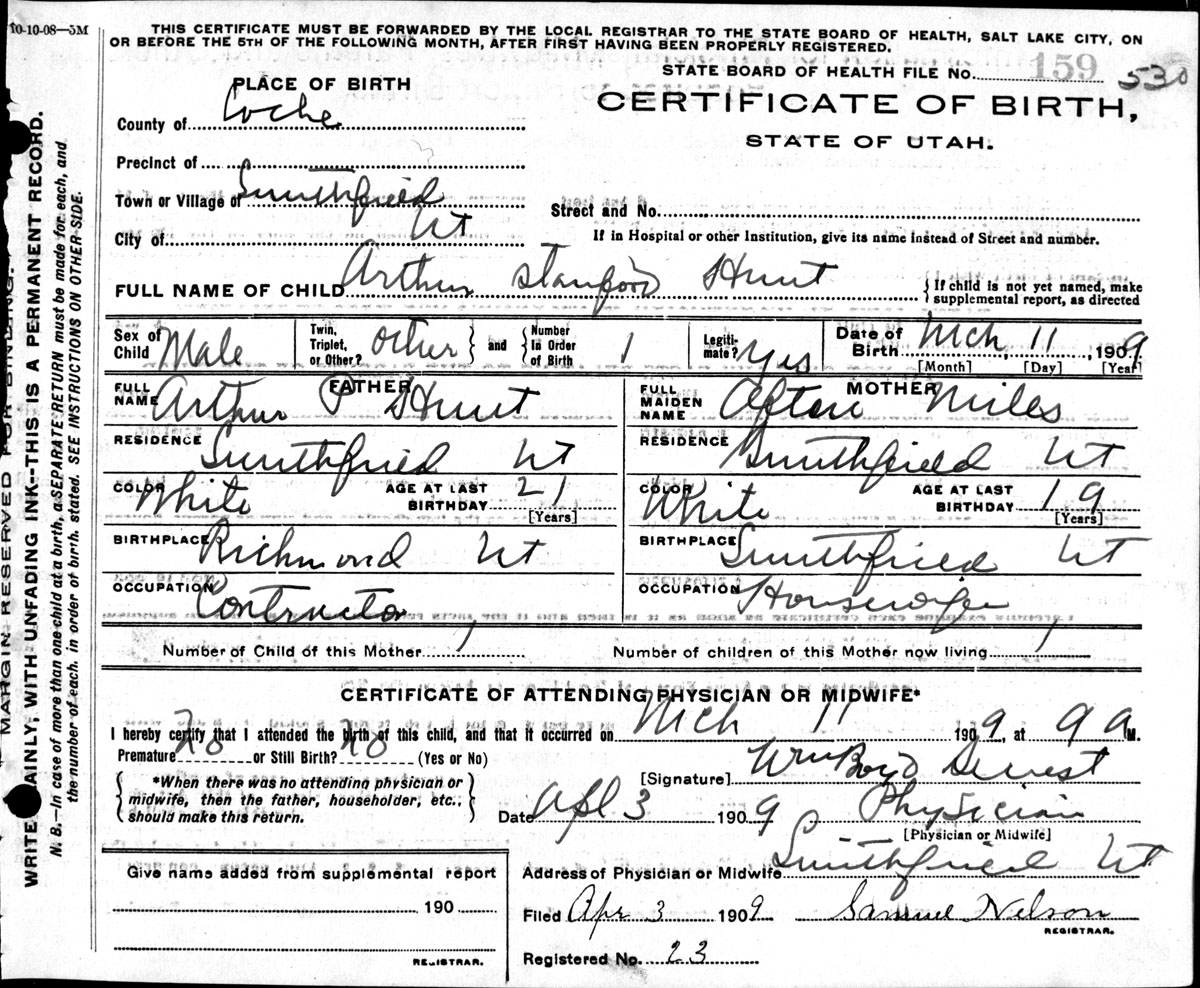 10-10-08—5M
THIS CERTIFICATE MUST BE FORWARDED BY THE LOCAL REGISTRAR TO THE STATE BOARD OF HEALTH, SALT LAKE CITY, ON
OR BEFORE THE 5TH OF THE FOLLOWING MONTH, AFTER FIRST HAVING BEEN PROPERLY REGISTERED.
STATE BOARD OF HEALTH FILE No. 159 530
PLACE OF BIRTH
CERTIFICATE OF BIRTH,
STATE OF UTAH.
County of Cache
Precinct of
Town or Village of Smithfield
Street and No.
City of Ut
If in Hospital or other Institution, give its name instead of Street and number.
FULL NAME OF CHILD Arthur Stanford Hunt
{If child is not yet named, make
supplemental report, as directed
Sex of Child Male
Twin, Triplet, or Other? other } and { Number In Order of Birth 1
Legitimate? Yes
Date of Birth Mch 11, 1909
[Month] [Day] [Year]
FATHER
FULL NAME Arthur P Hunt
MOTHER
FULL MAIDEN NAME Afton Miles
RESIDENCE Smithfield Ut
RESIDENCE Smithfield Ut
COLOR White AGE AT LAST BIRTHDAY 21 [Years]
COLOR White AGE AT LAST BIRTHDAY 19 [Years]
BIRTHPLACE Richmond Ut
BIRTHPLACE Smithfield Ut
OCCUPATION Contractor
OCCUPATION Housewife
Number of Child of this Mother 1 Number of children of this Mother now living 1
CERTIFICATE OF ATTENDING PHYSICIAN OR MIDWIFE*
I hereby certify that I attended the birth of this child, and that it occurred on Mch 11 1909, at 9 a M.
Premature No or Still Birth? No (Yes or No)
*When there was no attending physician or
midwife, then the father, householder, etc.,
should make this return.
[Signature] Wm Boyd
Date Apl 3 1909 Physician
[Physician or Midwife]
Address of Physician or Midwife Smithfield Ut
Give name added from supplemental report
190
REGISTRAR.
Filed Apr 3 1909 Samuel Nelson
REGISTRAR.
Registered No. 23
MARGIN RESERVED FOR BINDING.
WRITE PLAINLY, WITH UNFADING INK—THIS IS A PERMANENT RECORD.
N. B.—In case of more than one child at a birth, a SEPARATE RETURN must be made for each, and
the number of each, in order of birth, stated. SEE INSTRUCTIONS ON OTHER SIDE.